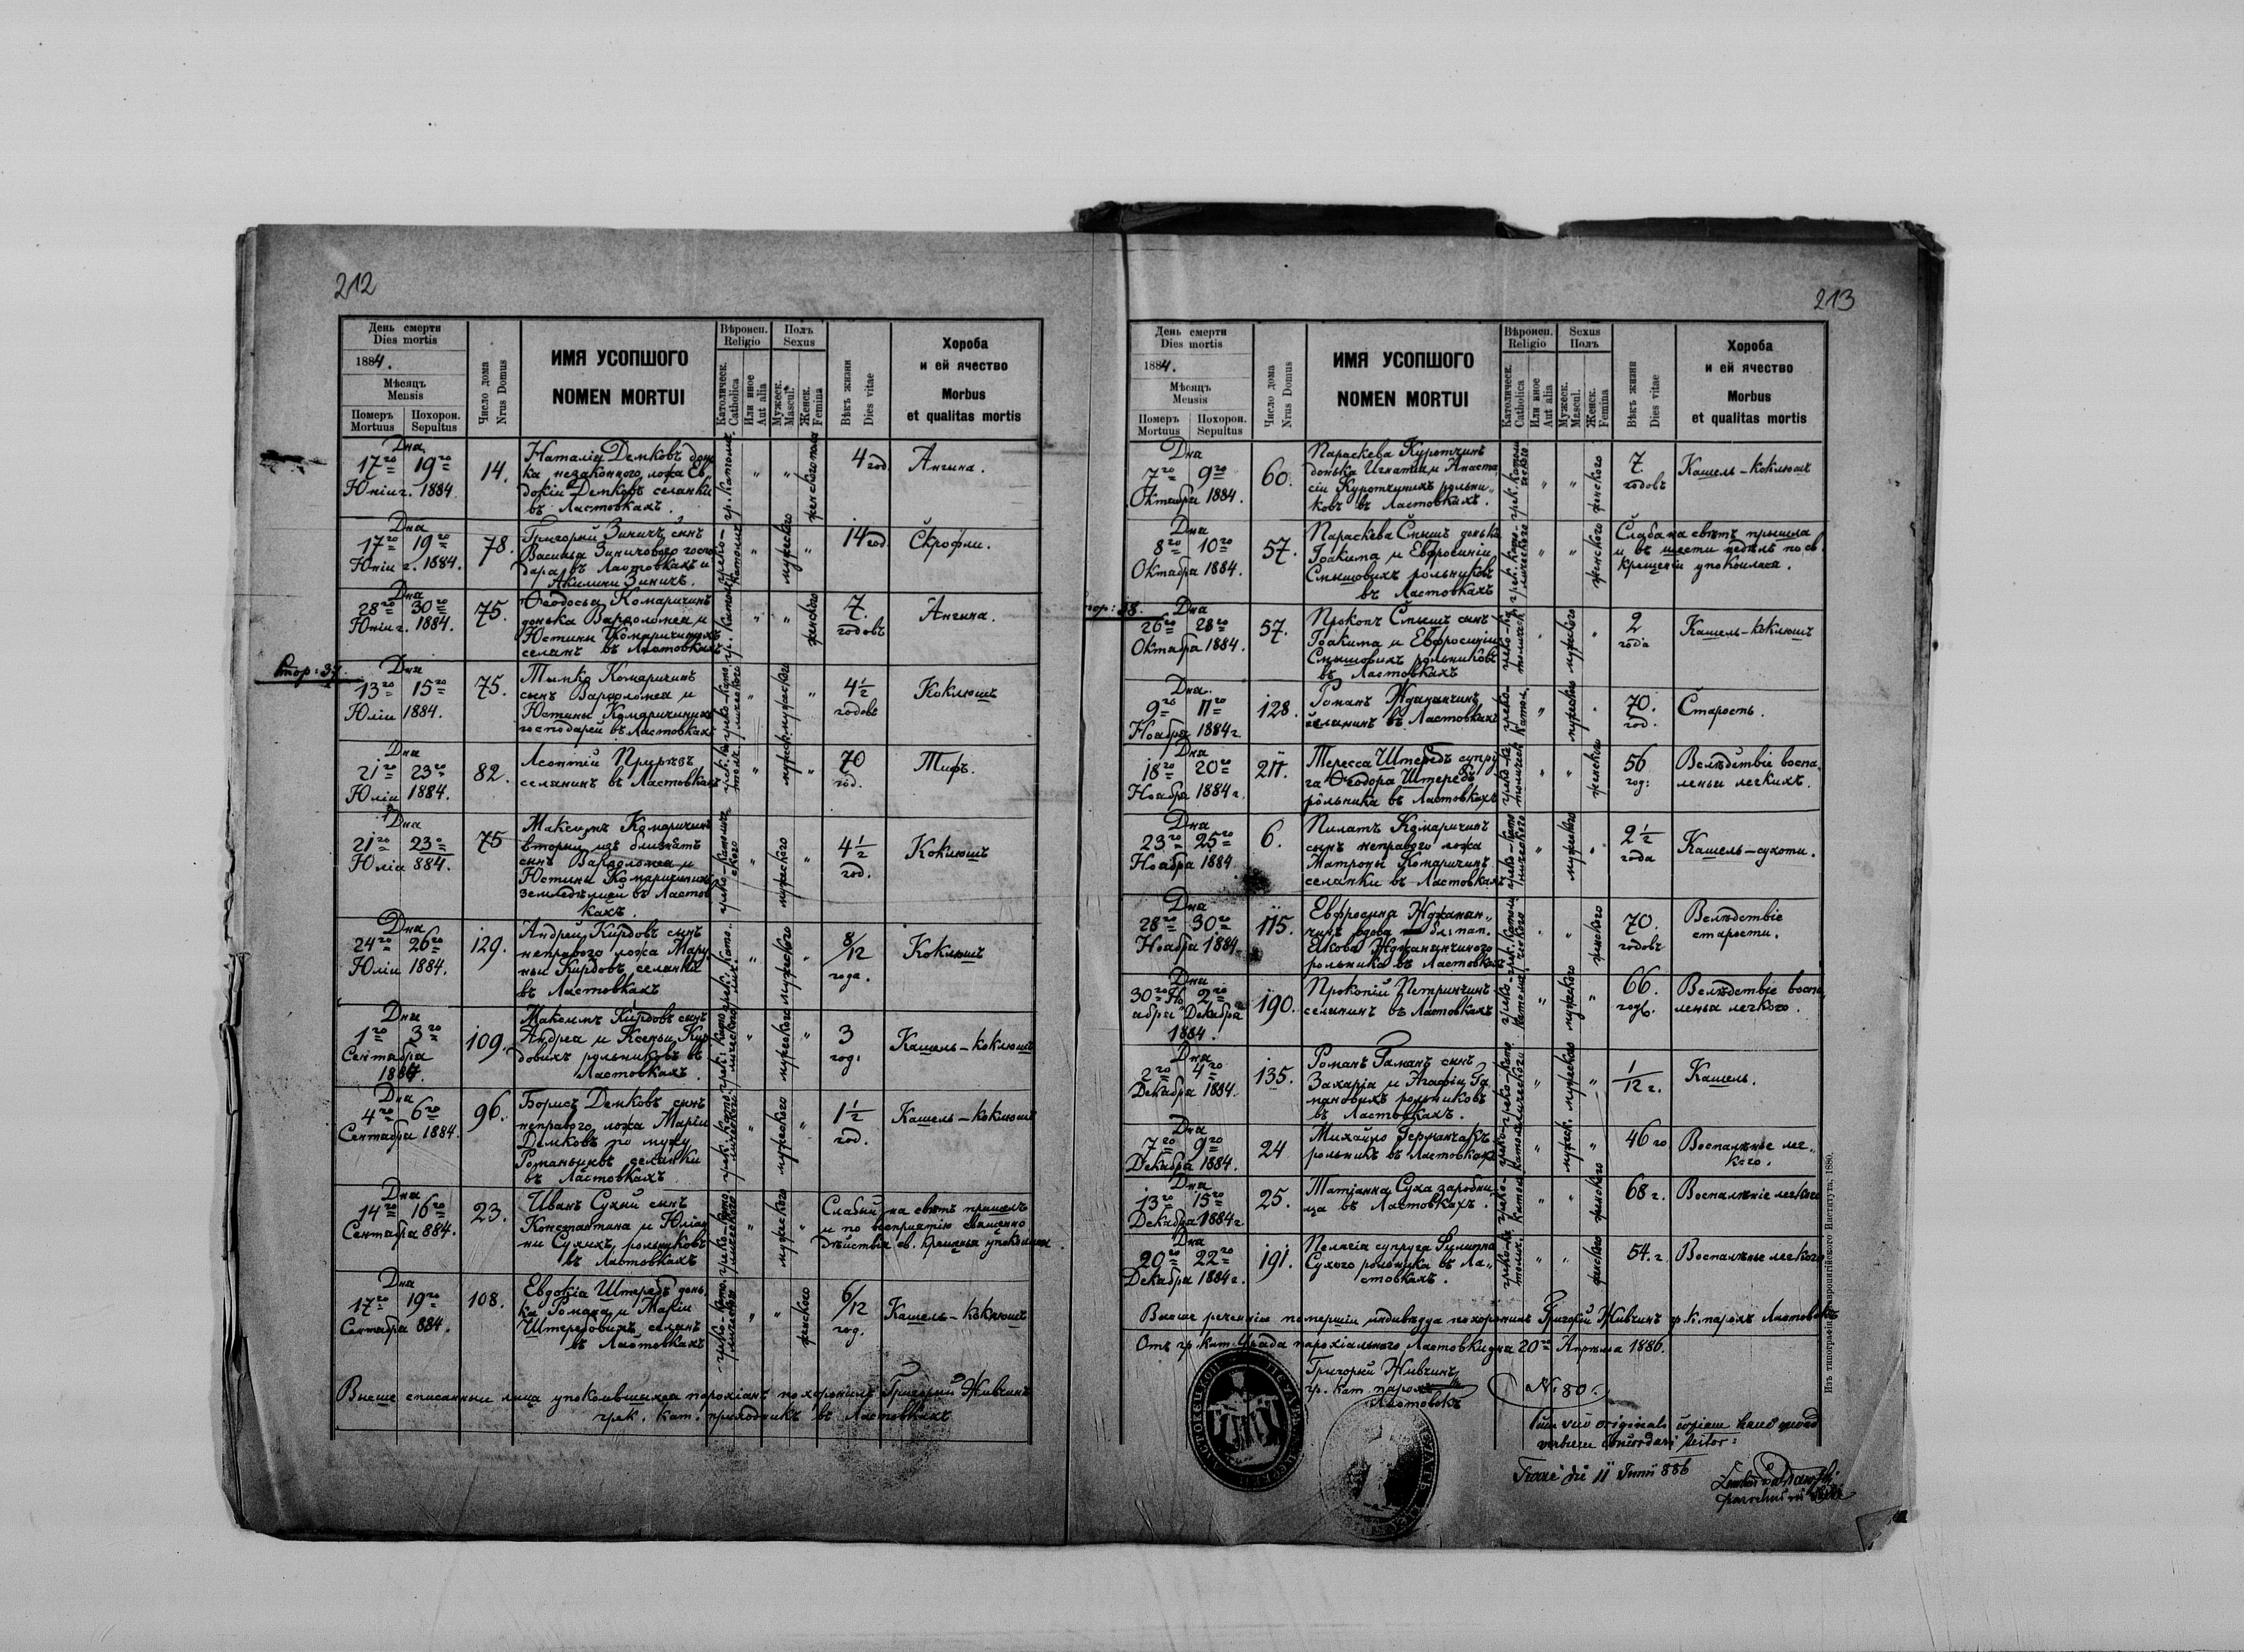 212
День смерти
Dies mortis
1884.
Мѣсяцъ
Mensis
Померъ Похорон.
Mortuus Sepultus
Число дома
Nrus Domus
ИМЯ УСОПШОГО
NOMEN MORTUI
Вѣроисп.
Religio
Католическ.
Catholica
Или иное
Aut alia
Полъ
Sexus
Мужеск.
Mascul.
Женск.
Femina
Вѣкъ жизни
Dies vitae
Хороба
и ей ячество
Morbus
et qualitas mortis
Дня
17го 19го
Юнія г. 1884
14.
Наталія Демковъ донь
ка незаконного ложа Ев
докіи Демковъ селянки
въ Ластовкахъ.
гр. католич.
женского пола
4 год
Ангина.
Дня
17го 19го
Юніи г. 1884.
78.
Григорій Зиничъ, сынъ
Василья Зиничового госпо
даря въ Ластовкахъ и
Акилины Зиничъ.
греко-
католич.
мужеского
14 год
Скрофли.
Дня
28го 30го
Юніи г. 1884.
75.
Ѳеодосья Комаричинъ
донька Варѳоломея и
Юстины Комаричиныхъ
селянъ въ Ластовкахъ
женского
7.
годовъ
Ангина.
Стор: 37.
Дня
13го 15го
Юліи 1884.
75.
Тымко Комаричинъ
сынъ Варѳоломея и
Юстины Комаричиныхъ
господарей въ Ластовкахъ
мужеского
4 1/2
годовъ
Коклюшъ
Дня
21го 23го
Юліи 1884.
82.
Леонтій
селянинъ въ Ластовкахъ
70
год.
Тифъ.
Дня
21го 23го
Юлія 884.
75
Максимъ Комаричинъ
вторый изъ близнятъ
сынъ Варѳоломея и
Юстины Комаричиныхъ
въ Ластов
кахъ.
греко-католиче
ского
мужеского
4 1/2
год.
Коклюшъ
Дня
24го 26го
Юліи 1884.
129.
Андрей Кирдовъ сынъ
неправого ложа Мару
ньи Кирдовъ селянки
въ Ластовкахъ
мужеского
8/12
года.
Коклюшъ
Дня
1го 3го
Сентября
1884.
109.
Максимъ Кирдовъ сынъ
Андрея и Ксеньи Кир
довихъ рольниковъ въ
Ластовкахъ.
мужеского
3
год:
Кашель-коклюшъ
Дня
4го 6го
Сентября 1884.
96.
Борисъ Демковъ сынъ
неправого ложа Маріи
Демковъ по мужу
селянки
въ Ластовкахъ.
мужеского
1 1/2
год.
Кашель-коклюшъ
Дня
14го 16го
Сентября 884.
23.
Иванъ Сухий сынъ
Константина и Юліан
ни Сухихъ, рольниковъ
въ Ластовкахъ
мужеского
Слабый на свѣтъ пришелъ
и по воспріятію священно
дѣйствія св. крещенья упокоился.
Дня
17го 19го
Сентября 884.
108.
Евдокія Штередъ донь
ка Романа и Маріи
Штередовихъ селянъ
въ Ластовкахъ
женского
6/12
год.
Кашель-коклюшъ
Высше списанныи лица упокоившихся парохіянъ похоронилъ Григорий Живчинъ
грек. кат. приходникъ въ Ластовкахъ
213
День смерти
Dies mortis
1884.
Мѣсяцъ
Mensis
Померъ Похорон.
Mortuus Sepultus
Число дома
Nrus Domus
ИМЯ УСОПШОГО
NOMEN MORTUI
Вѣроисп.
Religio
Католическ.
Catholica
Или иное
Aut alia
Sexus
Полъ
Мужеск.
Mascul.
Женск.
Femina
Вѣкъ жизни
Dies vitae
Хороба
и ей ячество
Morbus
et qualitas mortis
Дня
7го 9го
Октября 1884.
60.
Параскева Куротчинъ
донька Игнатія и Анаста
сіи Куротчиныхъ рольни
ковъ въ Ластовкахъ.
женского
7.
годовъ
Кашель-коклюшъ
Дня
8го 10го
Октября 1884.
57.
Параскева Смыш донька
Іоакима и Евфросиніи
Смышовихъ рольниковъ
въ Ластовкахъ
женского
Слаба на свѣтъ пришла
и въ шести недѣль по св.
крещеніи упокоилася.
стор: 38.
Дня
26го 28го
Октября 1884.
57.
Прокопъ Смышъ сынъ
Іоакима и Евфросиніи
Смышовихъ рольниковъ
въ Ластовкахъ
мужеского
2
года
Кашель-коклюшъ
Дня
9го 11го
Ноября 1884г.
128.
Романъ Жданчинъ
селянинъ въ Ластовкахъ
мужеского
70.
год.
Старость.
Дня
18го 20го
Ноября 1884г.
211.
Тересса Штередъ супру
га Ѳеодора Штередъ
рольника въ Ластовкахъ
женского
56
год:
Вслѣдствіе воспа
ленья легкихъ.
Дня
23го 25го
Ноября 1884.
6.
Пилатъ Комаричинъ
сынъ неправого ложа
Матроны Комаричинъ
селянки въ Ластовкахъ
мужеского
2 1/2
года
Кашель-сухоти.
Дня
28го 30го
Ноября 1884.
115.
Евфросина
чинъ вдова бл: пап.
Якова
рольника въ Ластовкахъ
женского
70.
годовъ
Вслѣдствіе
старости.
Дня
30го Но 2го
ября Декабря
1884.
190.
Прокопій Петричинъ
селянинъ въ Ластовкахъ
мужеского
66.
годъ.
Вслѣдствіе воспа
ленья легкого.
Дня
2го 4го
Декабря 1884.
135.
Романъ Гаманъ сынъ
Захарія и Агафіи Га
мановихъ рольниковъ
въ Ластовкахъ.
мужеского
1/12 г.
Кашель.
Дня
7го 9го
Декабря 1884.
24
Михайло Германчакъ
рольникъ въ Ластовкахъ
мужеск.
46 го
Воспаленье лег
кого.
Дня
13го 15го
Декабря 1884г.
25.
Татіанна Суха заробни
ца въ Ластовкахъ.
женского
68 г.
Воспаленіе легкого
Дня
20го 22го
Декабря 1884г.
191.
Пелагія супруга
Сухого рольника въ Ла
стовкахъ.
женского
54. г.
Воспаленье легкого
Высше реченніи помершіи похоронилъ Григорій Живчинъ гр. к. парохъ Ластовокъ
Отъ гр. кат. Уряда парохіального Ластовки дня 20го Апрѣля 1886.
Григорий Живчинъ
гр. кат. парохъ
Ластовокъ
№ 80.
Cum suo originali copiam hanc quoad
verbum concordari testor:
die 11 Junii 886
Изъ типографіи Ставропигійского Института, 1880.